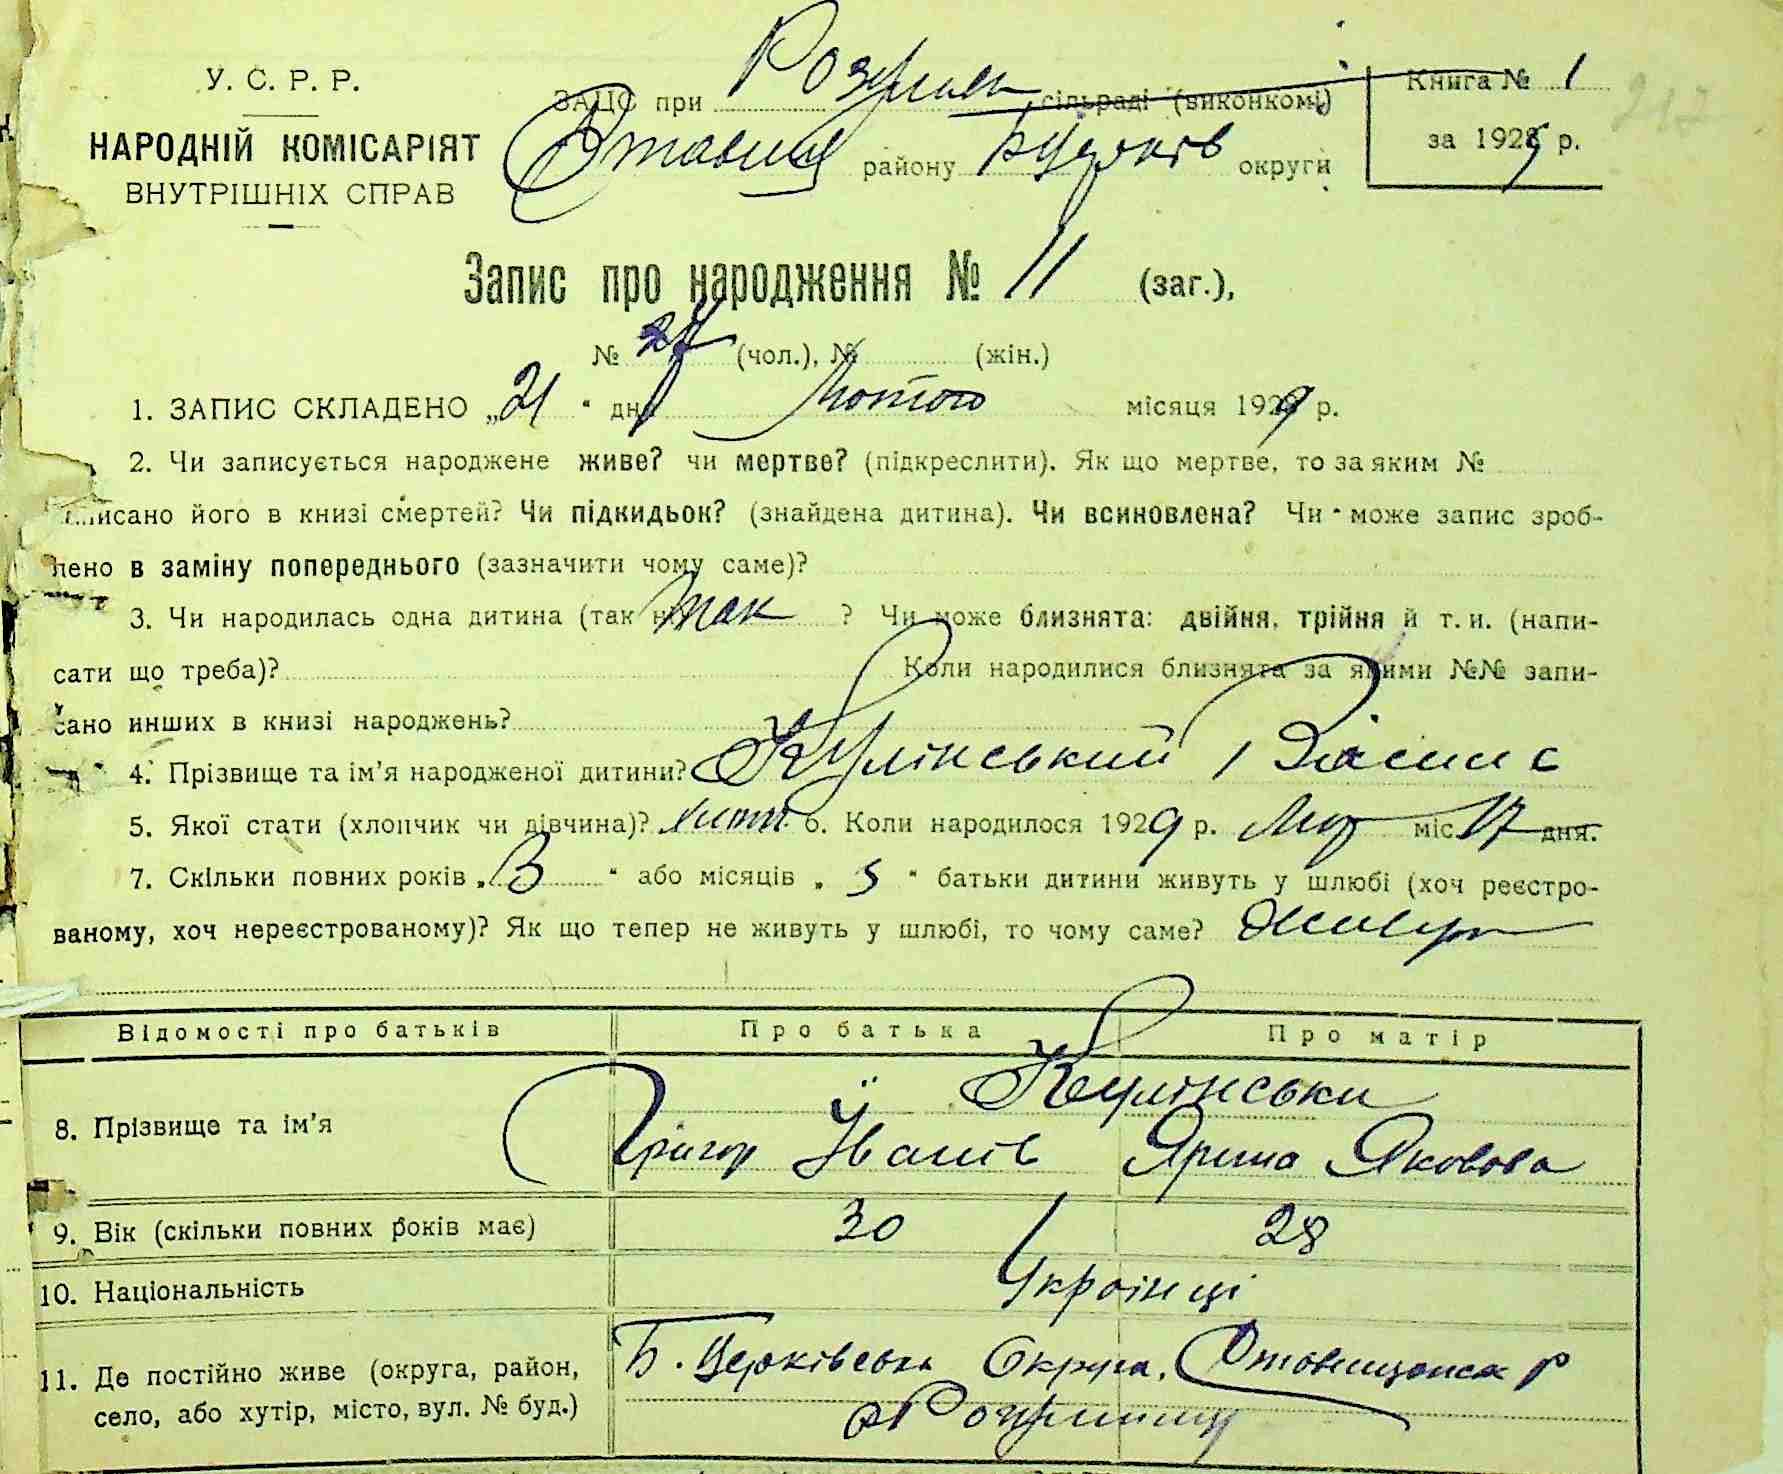 У. С. Р. Р.
НАРОДНІЙ КОМІСАРІЯТ
ВНУТРІШНІХ СПРАВ
ЗАЦС при сільраді (виконкомі)
району Б Церків округи
Книга № 1
за 1929 р.
217
Запис про народження № 11 (заг.),
№ (чол.), № (жін.)
1. ЗАПИС СКЛАДЕНО „21" дня Лютого місяця 1929 р.
2. Чи записується народжене живе? чи мертве? (підкреслити). Як що мертве, то за яким №
писано його в книзі смертей? Чи підкидьок? (знайдена дитина). Чи всиновлена? Чи може запис зроб-
лено в заміну попереднього (зазначити чому саме)?
3. Чи народилась одна дитина (так ні) так ? Чи може близнята: двійня, трійня й т. и. (напи-
сати що треба)? Коли народилися близнята за якими №№ запи-
сано инших в книзі народжень?
4. Прізвище та ім'я народженої дитини? Кулінський
5. Якої стати (хлопчик чи дівчина)? 6. Коли народилося 1929 р. Лют міс. 17 дня.
7. Скільки повних років „3" або місяців „5" батьки дитини живуть у шлюбі (хоч реєстро-
ваному, хоч нереєстрованому)? Як що тепер не живуть у шлюбі, то чому саме? Живуть
Відомості про батьків Про батька Про матір
8. Прізвище та ім'я Кулінськи
Григор Іванів Ярина Яковова
9. Вік (скільки повних років має) 30 28
10. Національність Українці
11. Де постійно живе (округа, район, Б. Церківська Округа,
село, або хутір, місто, вул. № буд.)